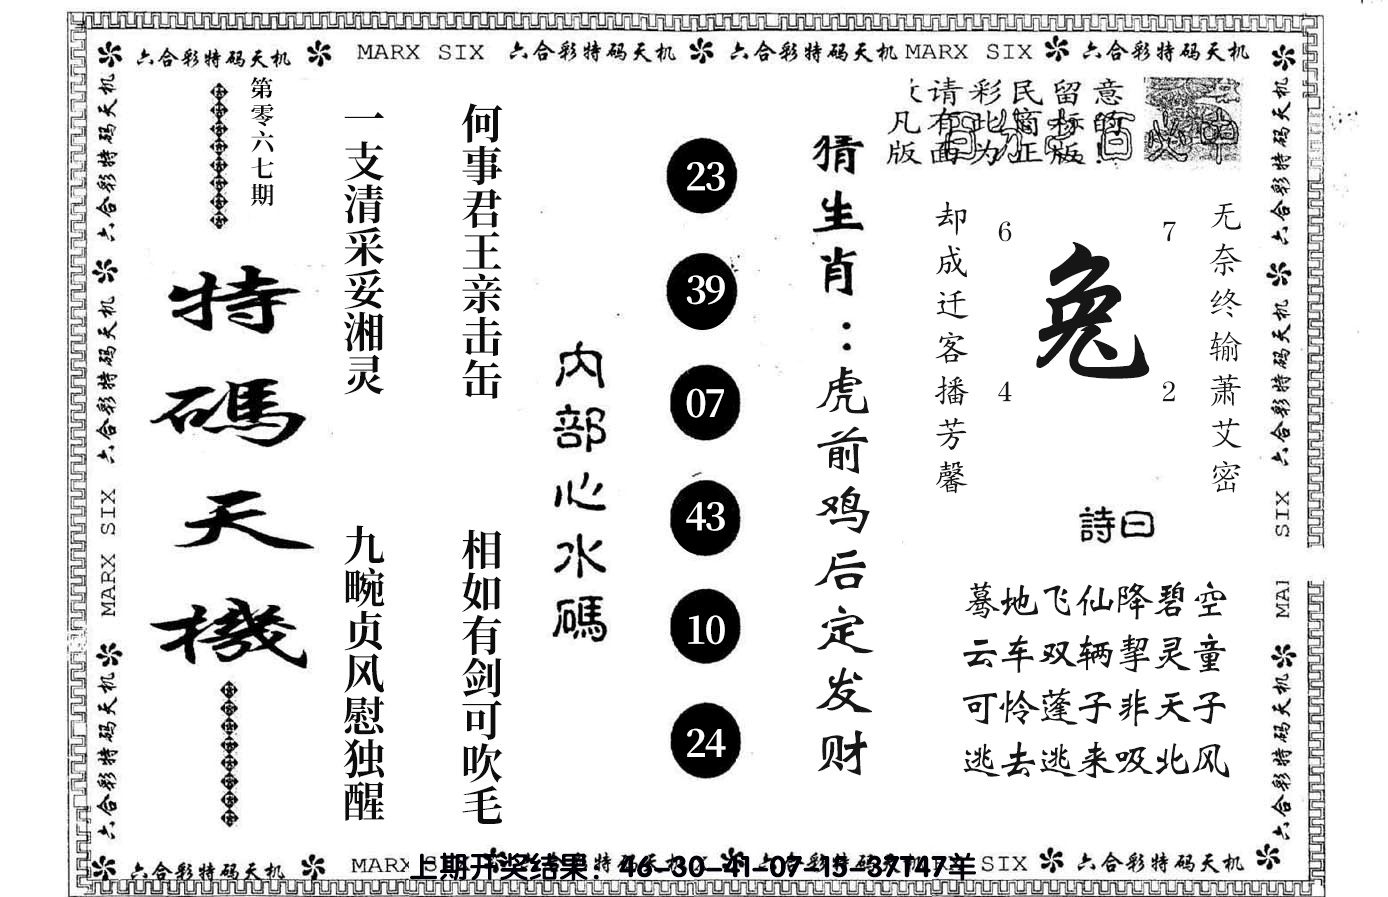 六合彩特码天机 MARX SIX 六合彩特码天机 六合彩特码天机 MARX SIX 六合彩特码天机
六合彩特码天机
六合彩特码天机
MARX SIX
六合彩特码天机
第零六七期
特碼天機
一支清采妥湘灵
九畹贞风慰独醒
何事君王亲击缶
相如有剑可吹毛
内部心水碼
23
39
07
43
10
24
猜生肖：虎前鸡后定发财
请彩民留意
凡有此商标的
版面为正版!
却成迁客播芳馨
6
7
兔
4
2
无奈终输萧艾密
詩曰
蓦地飞仙降碧空
云车双辆挈灵童
可怜蓬子非天子
逃去逃来吸北风
六合彩特码天机
六合彩特码天机
SIX
MAI
六合彩特码天机
六合彩特码天机 MARX SIX 六合彩特码天机
上期开奖结果：46-30-41-07-15-37T47羊